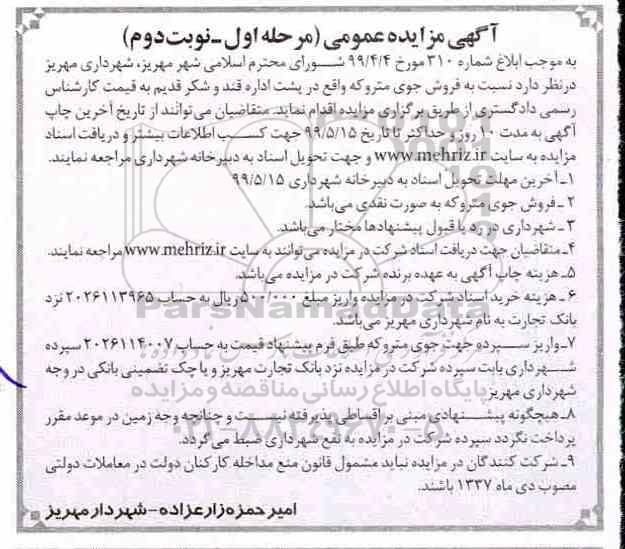 آگهی مزایده عمومی (مرحله اول ـ نوبت دوم)
به موجب ابلاغ شماره ۳۱۰ مورخ ۹۹/۴/۴ شورای محترم اسلامی شهر مهریز، شهرداری مهریز
درنظر دارد نسبت به فروش جوی متروکه واقع در پشت اداره قند و شکر قدیم به قیمت کارشناس
رسمی دادگستری از طریق برگزاری مزایده اقدام نماید. متقاضیان می‌توانند از تاریخ آخرین چاپ
آگهی به مدت ۱۰ روز و حداکثر تا تاریخ ۹۹/۵/۱۵ جهت کسب اطلاعات بیشتر و دریافت اسناد
مزایده به سایت www.mehriz.ir و جهت تحویل اسناد به دبیرخانه شهرداری مراجعه نمایند.
۱ـ آخرین مهلت تحویل اسناد به دبیرخانه شهرداری ۹۹/۵/۱۵
۲ـ فروش جوی متروکه به صورت نقدی می‌باشد.
۳ـ شهرداری در رد یا قبول پیشنهادها مختار می‌باشد.
۴ـ متقاضیان جهت دریافت اسناد شرکت در مزایده می‌توانند به سایت www.mehriz.ir مراجعه نمایند.
۵ـ هزینه چاپ آگهی به عهده برنده شرکت در مزایده می‌باشد.
۶ـ هزینه خرید اسناد شرکت در مزایده واریز مبلغ ۵۰۰/۰۰۰ ریال به حساب ۲۰۲۶۱۱۳۹۶۵ نزد
بانک تجارت به نام شهرداری مهریز می‌باشد.
ParsNamadData
۷ـ واریز سپرده جهت جوی متروکه طبق فرم پیشنهاد قیمت به حساب ۲۰۲۶۱۱۴۰۰۷ سپرده
شهرداری بابت سپرده شرکت در مزایده نزد بانک تجارت مهریز و یا چک تضمینی بانکی در وجه
شهرداری مهریز
پایگاه اطلاع رسانی مناقصه و مزایده
۸ـ هیچگونه پیشنهادی مبنی بر اقساطی پذیرفته نیست و چنانچه وجه زمین در موعد مقرر
پرداخت نگردد سپرده شرکت در مزایده به نفع شهرداری ضبط می‌گردد.
۰۲۱-۸۸۳۴۹۶۷۰-۵
۹ـ شرکت کنندگان در مزایده نباید مشمول قانون منع مداخله کارکنان دولت در معاملات دولتی
مصوب دی ماه ۱۳۳۷ باشند.
امیر حمزه زارعزاده - شهردار مهریز